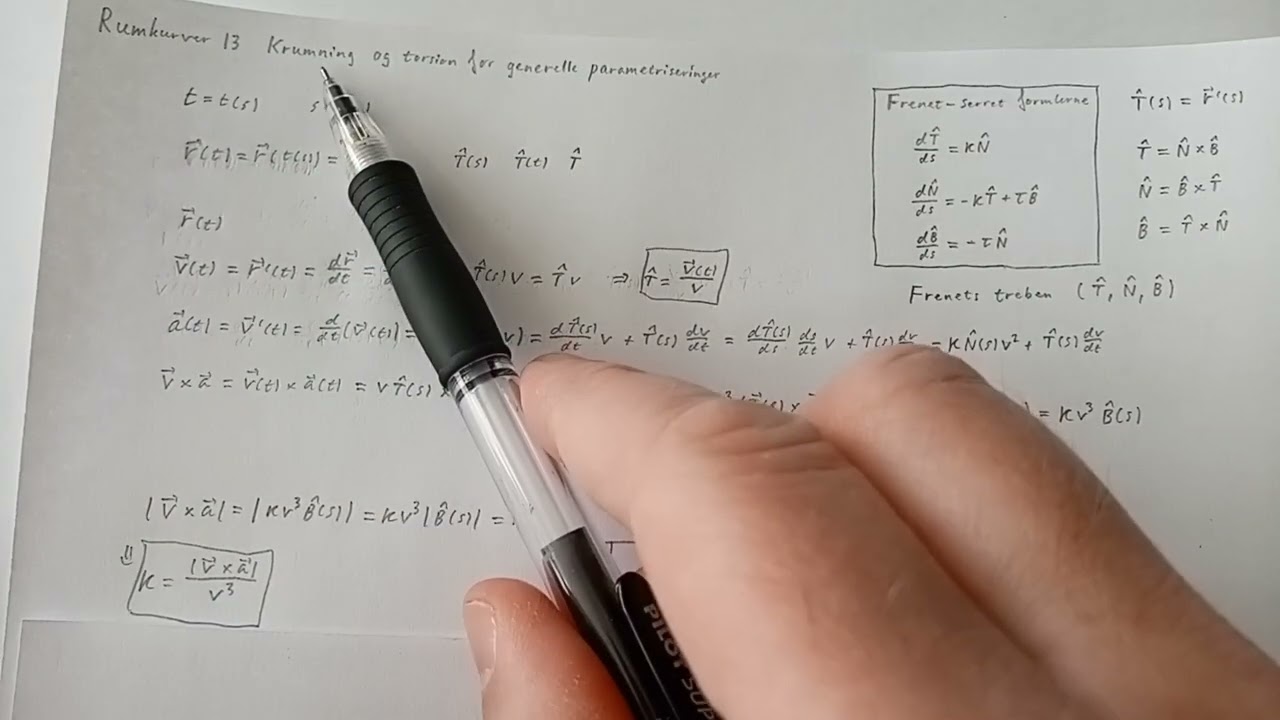 Rumkurver 13 Krumning og torsion for generelle parametriseringer
t = t(s) s
r⃗(t) = r⃗(t(s)) = T̂(s) T̂(t) T̂
r⃗(t)
v⃗(t) = r⃗'(t) = dr⃗/dt = T̂(s) v = T̂ v ⇒ T̂ = v⃗(t)/v
a⃗(t) = v⃗'(t) = d/dt (v⃗(t)) = v) = dT̂(s)/dt v + T̂(s) dv/dt = dT̂(s)/ds ds/dt v + T̂(s) dv = κN̂(s)v² + T̂(s) dv/dt
v⃗ × a⃗ = v⃗(t) × a⃗(t) = v T̂(s) × = κv³ B̂(s)
|v⃗ × a⃗| = |κv³B̂(s)| = κv³|B̂(s)| =
⇓
κ = |v⃗ × a⃗|/v³
Frenet-Serret formlerne
dT̂/ds = κN̂
dN̂/ds = -κT̂ + τB̂
dB̂/ds = -τN̂
T̂(s) = r⃗'(s)
T̂ = N̂ × B̂
N̂ = B̂ × T̂
B̂ = T̂ × N̂
Frenets treben (T̂, N̂, B̂)
PILOT SUP